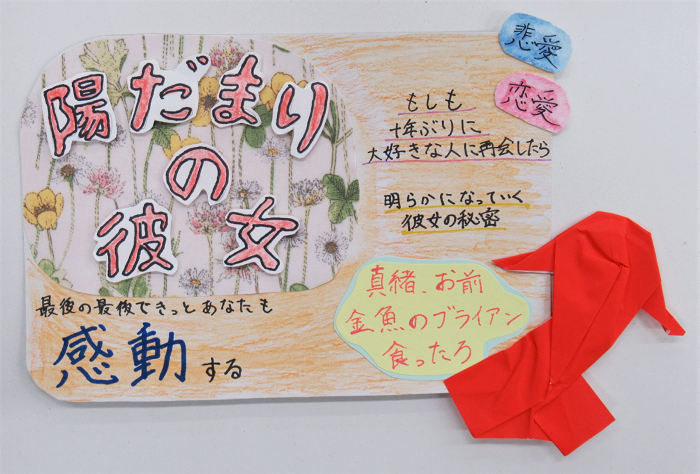 陽だまり
の
彼女
悲愛
恋愛
もしも
十年ぶりに
大好きな人に再会したら
明らかになっていく
彼女の秘密
真緒、お前
金魚のブライアン
食ったろ
最後の最後できっとあなたも
感動する